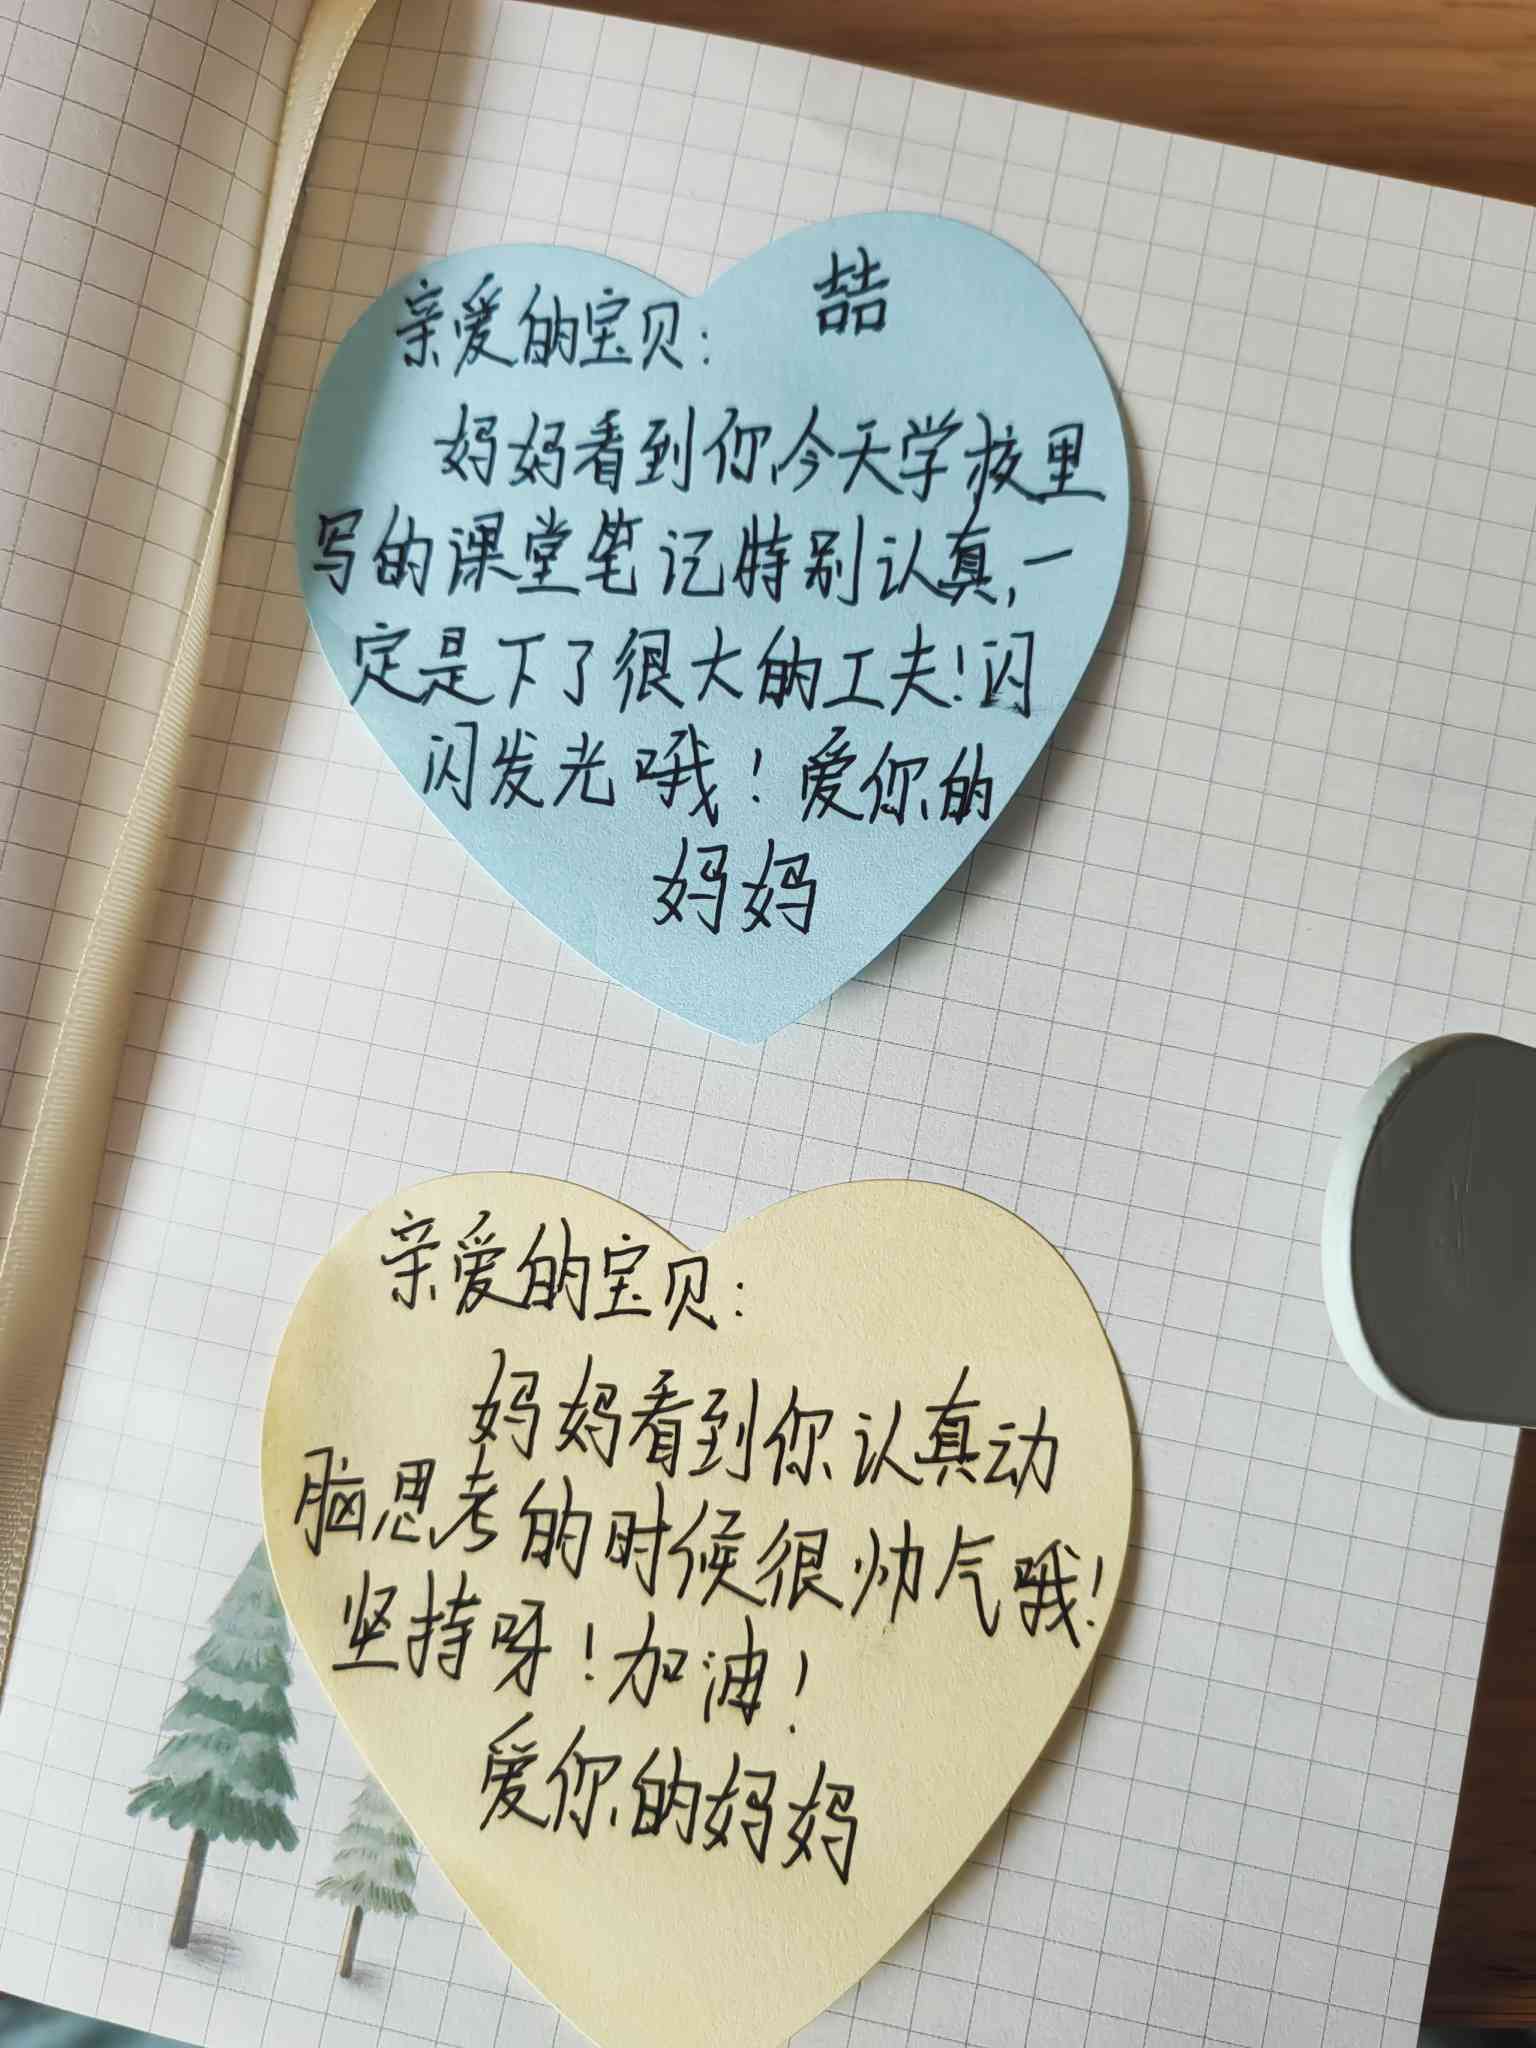 亲爱的宝贝: 喆
妈妈看到你今天学校里
写的课堂笔记特别认真,一
定是下了很大的工夫!闪
闪发光哦!爱你的
妈妈
亲爱的宝贝:
妈妈看到你认真动
脑思考的时候很帅气哦!
坚持呀!加油!
爱你的妈妈